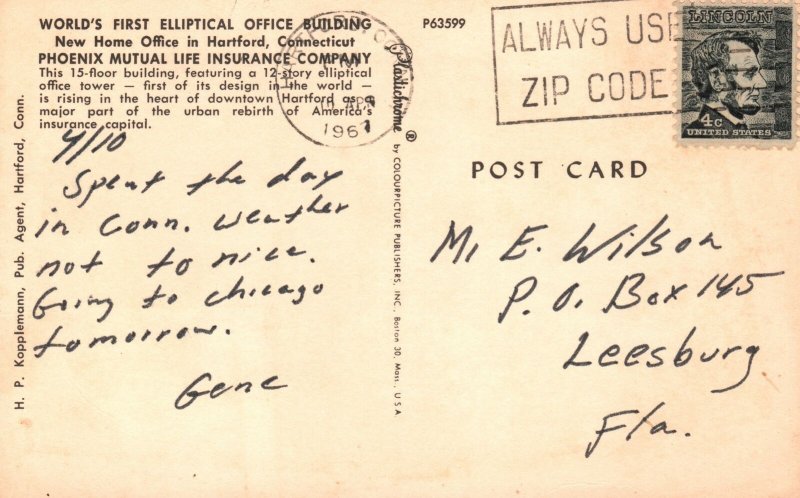 WORLD'S FIRST ELLIPTICAL OFFICE BUILDING
New Home Office in Hartford, Connecticut
PHOENIX MUTUAL LIFE INSURANCE COMPANY
This 15-floor building, featuring a 12-story elliptical
office tower — first of its design in the world —
is rising in the heart of downtown Hartford as a
major part of the urban rebirth of America's
insurance capital.
P63599
1967
ALWAYS USE
ZIP CODE
LINCOLN
4c
UNITED STATES
H. P. Kopplemann, Pub. Agent, Hartford, Conn.
Plastichrome ® by COLOURPICTURE PUBLISHERS, INC., Boston 30, Mass., U.S.A.
POST CARD
4/10
Spent the day
in Conn. Weather
not to nice.
Going to chicago
tomorrow.
Gene
E. Wilson
P. O. Box 145
Leesburg
Fla.